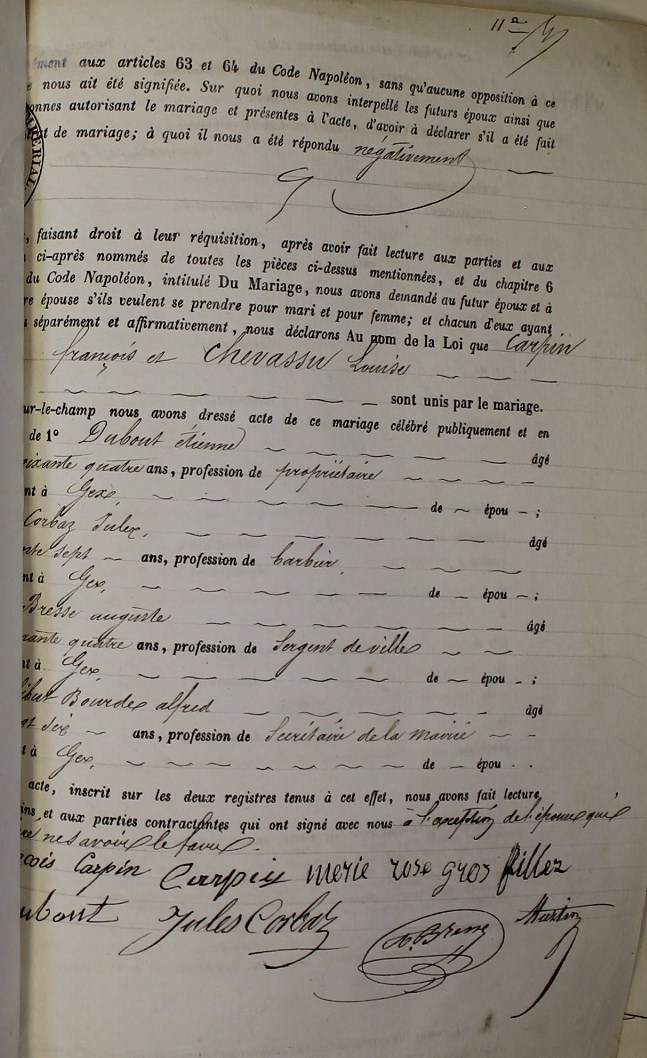 ment aux articles 63 et 64 du Code Napoléon, sans qu'aucune opposition à ce
nous ait été signifiée. Sur quoi nous avons interpellé les futurs époux ainsi que
onnes autorisant le mariage et présentes à l'acte, d'avoir à déclarer s'il a été fait
t de mariage; à quoi il nous a été répondu négativement
ERIAL
, faisant droit à leur réquisition, après avoir fait lecture aux parties et aux
ci-après nommés de toutes les pièces ci-dessus mentionnées, et du chapitre 6
du Code Napoléon, intitulé Du Mariage, nous avons demandé au futur époux et à
re épouse s'ils veulent se prendre pour mari et pour femme; et chacun d'eux ayant
séparément et affirmativement, nous déclarons Au nom de la Loi que Carpin
françois et Chevassu Louise
sont unis par le mariage.
ur-le-champ nous avons dressé acte de ce mariage célébré publiquement et en
de 1° Dubout étienne âgé
ixante quatre ans, profession de propriétaire
nt à Gex, de — épou — ;
Corbaz Jules, âgé
nte sept ans, profession de barbier
nt à Gex, de — épou — ;
Bresse auguste âgé
rante quatre ans, profession de Sergent de ville
nt à Gex de — épou — ;
Bourdex alfred âgé
gt six ans, profession de Secrétaire de la mairie
t à Gex, de — épou . .
acte, inscrit sur les deux registres tenus à cet effet, nous avons fait lecture
ins, et aux parties contractantes qui ont signé avec nous à l'exception de l'épouse qui
né savoir le faire.
çois Carpin Carpin merie rose gros fillez
ubout Jules Corbaz A. Bresse Martin